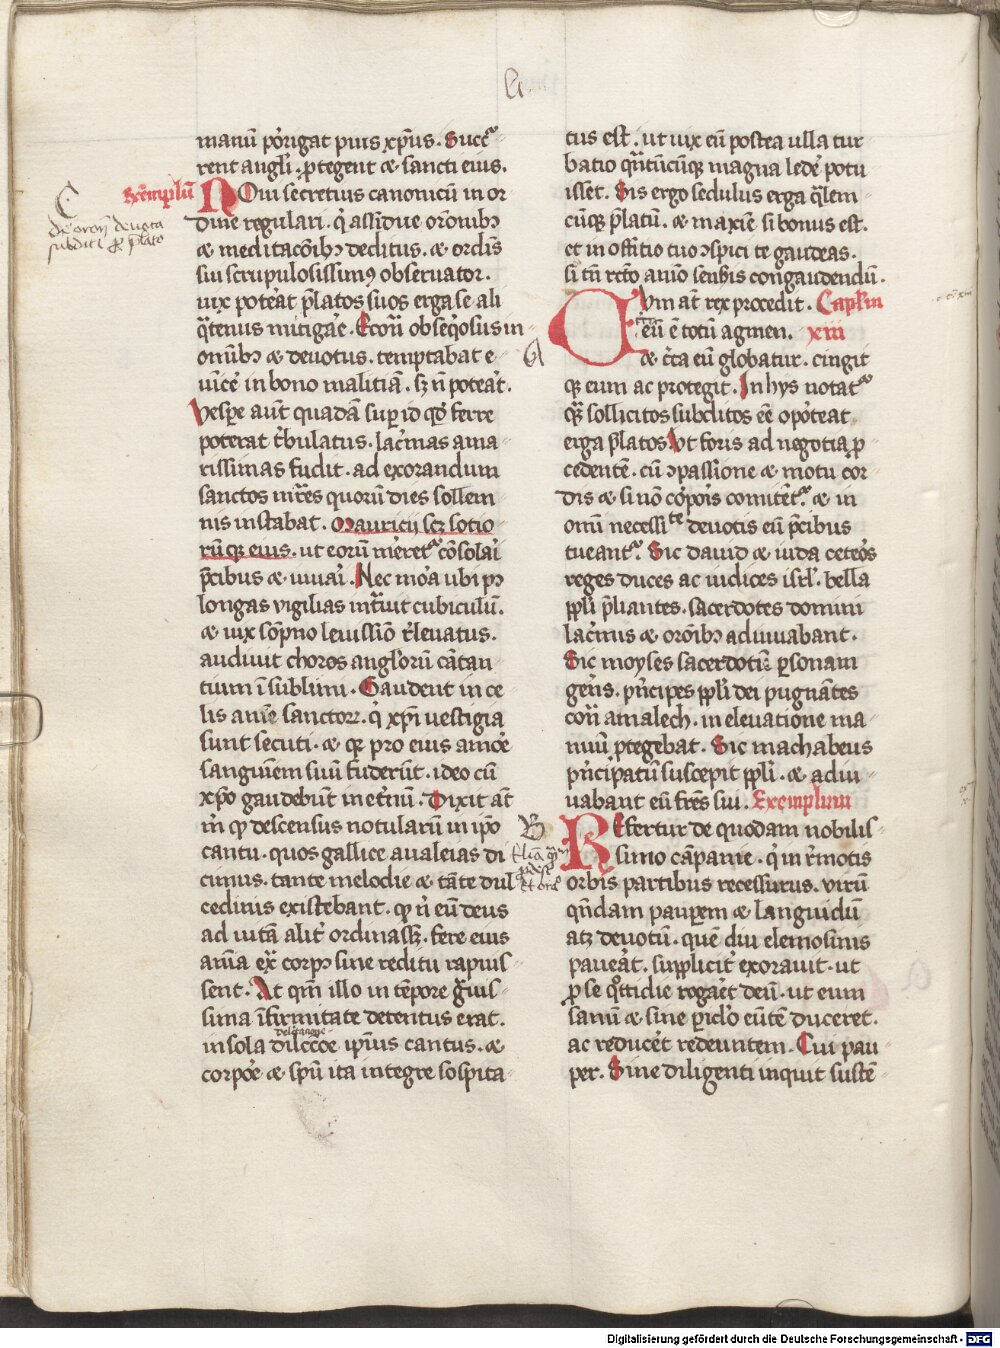 manū porigat pius xp̄us. Succ̄
rent angl̓i. ꝓtegent ⁊ sancti eius.
Exemplū
NOui secretius canonicū in or
dine regulari. q̓ assidue orōnibꝫ
⁊ meditacōnibꝫ deditus. ⁊ ordīs
sui scrupulosissimꝯ obseruator.
uix poterat p̄latos suos erga se ali
q̄tenus mitigare. Econ̄ obseq̄osus in
omībꝫ ⁊ deuotus. temptabat e
uīce̓ in bono malitiā. sꝫ n̄ poteāt.
Uespe aūt quadā suꝑ id qd̓ ferre
poterat t̓bulatus. lac̓mas ama
rissimas fudit. ad exorandum
sanctos mr̄es quorū dies sollem
nis instabat. Mauricij scꝫ sotio
rūqꝫ eius. ut eorū meret᷑ cōsolai̓
p̄cibus ⁊ iuuai̓. Nec mora ubi pꝰ
longas vigilias int̓uit cubiculū.
⁊ uix sōpno leuissīo r̄leuatus.
audiuit choros angl̓orū cātan
tium ī sublimi. Gaudent in ce
lis anīe sanctoꝝ. q̓ xp̄i uestigia
sunt secuti. ⁊ qꝫ pro eius amore
sanguinem suū fuderūt. ideo cū
xp̄o gaudebūt inet̓nū. Dixit aūt
m̓ ꝙ descensus notularū in ip̄o
cantu. quos gallice aualeias di
cimus. tante melodie ⁊ tāte dul
cedinis existebant. ꝙ n̓ eū deus
ad uitā alit̓ ordinassꝫ. fere eius
anīa ex̄ corpꝰ sine reditu rapuis
sent. At qm̄ illo in tēpore g̓uis
sima īfirmitate detentus erat.
in sola dilcc̄oe ip̄ius cantus. ⁊
corpore ⁊ sp̄u ita integre sospita
tus est. ut uix eū postea ulla tur
batio qn̄tūcūqꝫ magna lede̓ potu
isset. Sis ergo sedulus erga q̄lem
cūqꝫ p̄latū. ⁊ maxīe si bonus est.
et in offitio tuo ꝯspici te gaudeas.
si tn̄ rc̄to animo senseris congaudendū.
CVm at̄ rex procedit. Capl̓m
eū ē totū agmen. xiii
⁊ c̄ca eū globatur. cingit
qꝫ eum ac protegit. In hys notat᷑
qꝫ sollicitos subditos eē oporteat
erga p̄latos. Ut foris ad negotia ꝓ
cedentē. cū ꝯpassione ⁊ motu cor
dis ⁊ si nō corpois comitent᷑. ⁊ in
omī necessitate deuotis eū p̄cibus
tueant᷑. Sic dauid ⁊ iuda ceteros
reges duces ac iudices isrl̓. bella
ppl̓i p̄liantes. sacerdotes domini
lac̓mis ⁊ orōnibꝫ adiuuabant.
Sic moyses sacerdotū ꝑsonam
gerēs. p̓ncipes ppl̓i dei pugnātes
con̄ amalech. in eleuatione ma
nuū ꝓtegebat. Sic machabeus
p̓ncipatū suscepit ppl̓i. ⁊ adiu
uabant eū fr̄es sui. Exemplum
REfertur de quodam nobilis
simo cāpanie. q̓ in r̄motis
orbis partibus recessurus. virū
qn̄dam pauꝑem ⁊ languidū
atqꝫ deuotū. quē diu elemosinis
pauerat. supplicit̓ exorauit. ut
ꝓ se qͦttidie rogaret deū. ut eum
sanū ⁊ sine ꝑiclo̓ eūtē duceret.
ac reduceret redeuntem. Cui pau
per. Sine diligenti inquit sustē
Digitalisierung gefördert durch die Deutsche Forschungsgemeinschaft - DFG